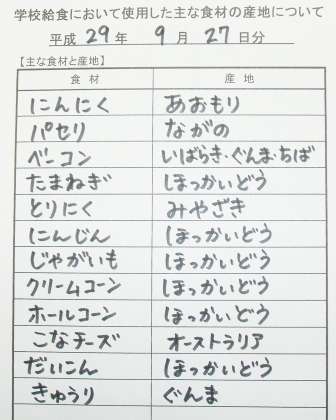 学校給食において使用した主な食材の産地について
平成 29 年 9 月 27 日分
【主な食材と産地】
食材 産地
にんにく あおもり
パセリ ながの
ベーコン いばらき・ぐんま・ちば
たまねぎ ほっかいどう
とりにく みやざき
にんじん ほっかいどう
じゃがいも ほっかいどう
クリームコーン ほっかいどう
ホールコーン ほっかいどう
こなチーズ オーストラリア
だいこん ほっかいどう
きゅうり ぐんま